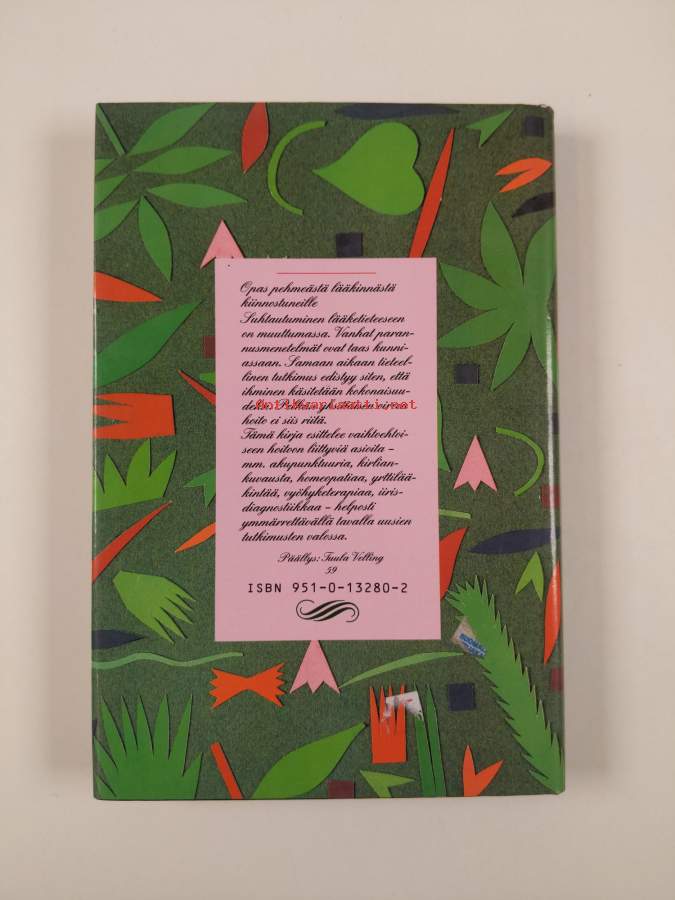 Opas pehmeästä lääkinnästä
kiinnostuneille
Suhtautuminen lääketieteeseen
on muuttumassa. Vanhat paran-
nusmenetelmät ovat taas kunni-
assaan. Samaan aikaan tieteel-
linen tutkimus edistyy siten, että
ihminen käsitetään kokonaisuu-
deksi. Pelkkä
Antikvaplaatti.net
hoito ei siis riitä.
Tämä kirja esittelee vaihtoehtoi-
seen hoitoon liittyviä asioita –
mm. akupunktuuria, kirlian-
kuvausta, homeopatiaa, yrttilää-
kintää, vyöhyketerapiaa, iiris-
diagnostiikkaa – helposti
ymmärrettävällä tavalla uusien
tutkimusten valossa.
Päällys: Tuula Velling
59
ISBN 951-0-13280-2